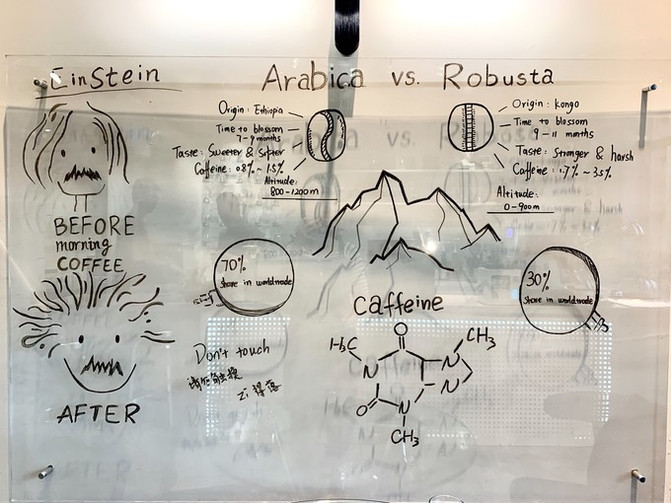 EinStein
Arabica vs. Robusta
Origin: Ethiopia
Time to blossom
7-9 months
Taste: Sweeter & Softer
Caffeine: 0.8% ~ 1.5%
Altitude:
800-1200m
Origin: Kongo
Time to blossom
9-11 months
Taste: Stronger & harsh
Caffeine: 1.7% ~ 3.5%
Altitude:
0-900m
BEFORE
morning
COFFEE
AFTER
70%
Share in worldtrade
30%
Share in worldtrade
Caffeine
O
H3C
N
CH3
N
N
O
N
CH3
Don't touch